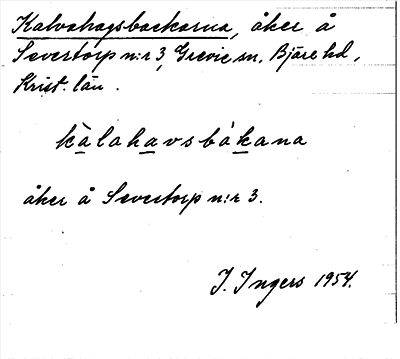 Kalvahagsbackarna, åker å
Sevestorp n:r 3, Grevie sn, Bjäre hd,
Krist. län.
kàlahavsbákana
åker å Sevestorp n:r 3.
I. Ingers 1954.